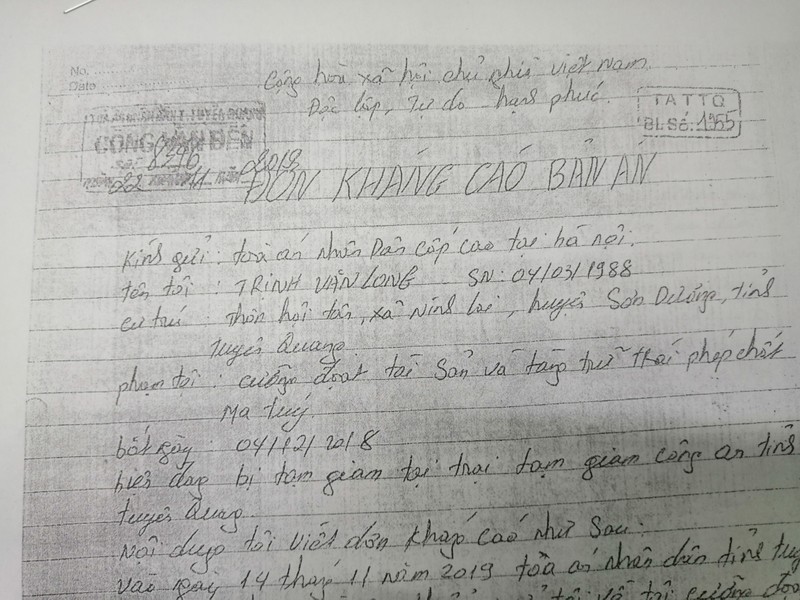 No. ......
Date ......
Cộng hoà xã hội chủ nghĩa việt nam.
Độc lập, Tự do hạnh phúc.
TATTQ
BL Số: 155
CÔNG VĂN ĐẾN
8276
22 11 2019
ĐƠN KHÁNG CÁO BẢN ÁN
Kính gửi: toà án nhân Dân cấp cao tại hà nội.
tên tôi : TRỊNH VĂN LONG SN: 04/03/1988
cư trú : thôn hội tân, xã Ninh lai, huyện Sơn Dương, tỉnh
tuyên Quang.
phạm tội : cưỡng đoạt tài Sản và tàng trữ trái phép chất
Ma tuý.
bắt ngày : 04/12/2018
hiện đang bị tạm giam tại trại tạm giam công an tỉnh
tuyên Quang.
Nội dung tôi viết đơn kháng cáo như Sau:
vào ngày 14 tháng 11 năm 2019 toà án nhân dân tỉnh
tôi về tội cưỡng